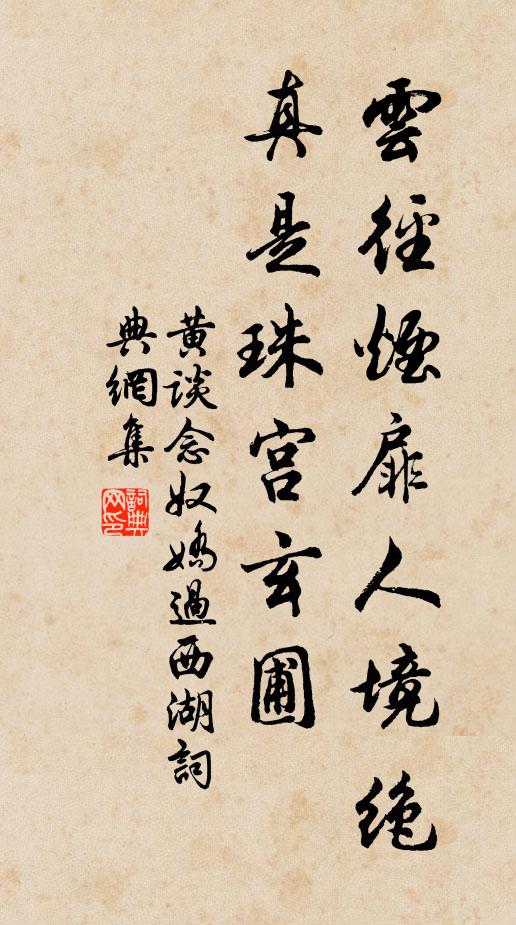 雲徑煙扉人境絶
真是珠宮玄圃
黄談念奴嬌過西湖詞
典網集
詞典網印